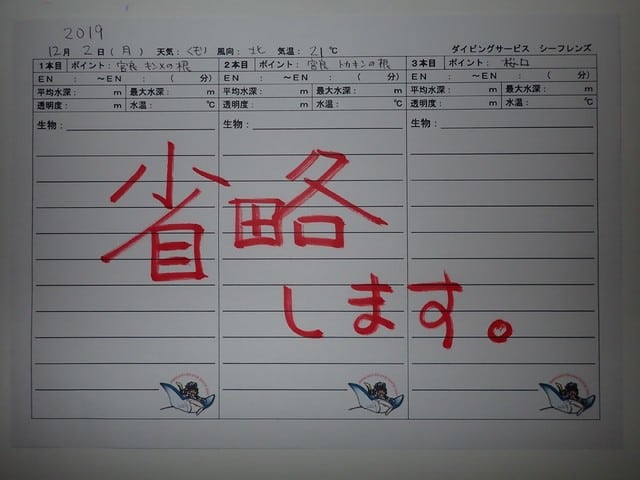 2019
12月 2日(月) 天気:くもり 風向:北 気温:21℃ ダイビングサービス シーフレンズ
1本目 ポイント:宮良 キンメの根 2本目 ポイント:宮良 トカキンの根 3本目 ポイント:桜口
EN : ～EN : ( 分) EN : ～EN : ( 分) EN : ～EN : ( 分)
平均水深: m 最大水深: m 平均水深: m 最大水深: m 平均水深: m 最大水深: m
透明度: m 水温: ℃ 透明度: m 水温: ℃ 透明度: m 水温: ℃
生物: 生物: 生物:
省略
します。